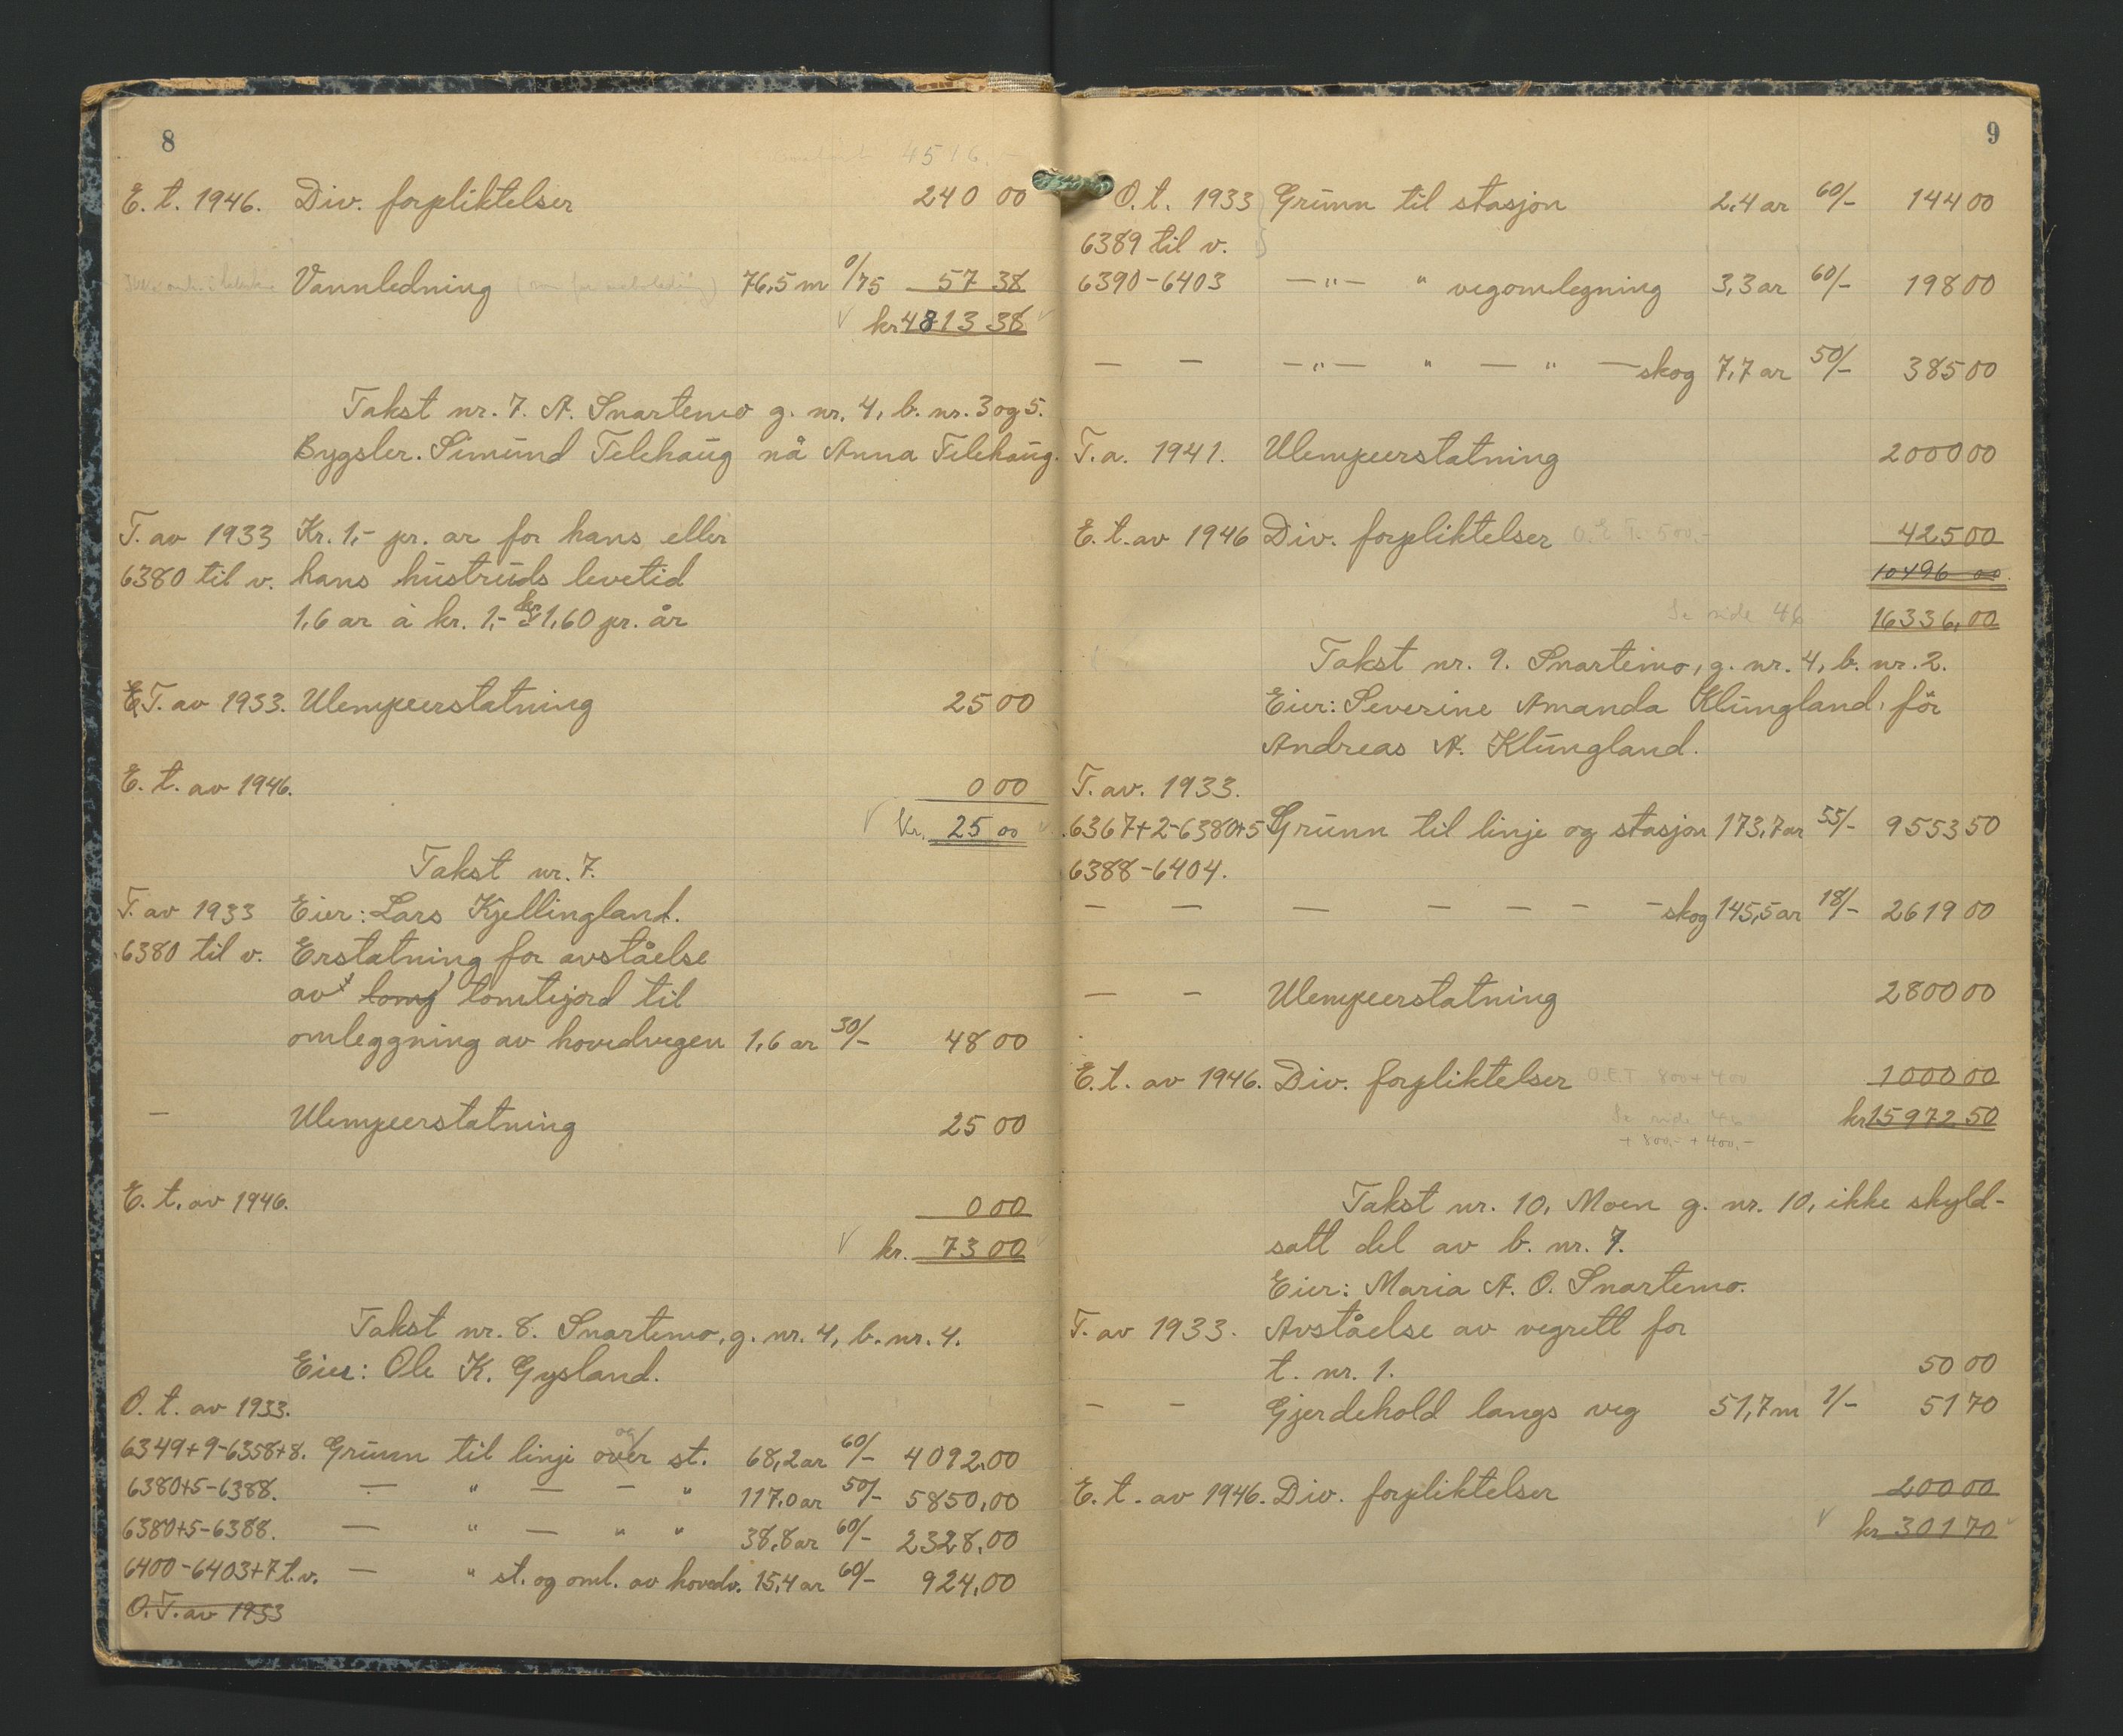 8
4516.-
E. t. 1946. Div. forpliktelser 240 00
Vannledning 76,5 m 0/75 57 38
kr 4813 38
Takst nr. 7. A. Snartemo g. nr. 4, b. nr. 3 og 5.
Bygsler. Simund Telehaug nå Anna Telehaug.
T. av 1933 Kr. 1,- pr. ar for hans eller
6380 til v. hans hustruds levetid
1,6 ar à kr. 1,- = kr 1,60 pr. år
E T. av 1933. Ulempeerstatning 25 00
E. t. av 1946. 0 00
Kr. 25 00
Takst nr. 7.
T. av 1933 Eier: Lars Kjellingland.
6380 til v. Erstatning for avståelse
av tomtejord til
omleggning av hovedvegen 1,6 ar 30/- 48 00
— Ulempeerstatning 25 00
E. t. av 1946. 0 00
kr. 73 00
Takst nr. 8. Snartemo, g. nr. 4, b. nr. 4.
Eier: Ole K. Gysland.
O. t. av 1933.
6349+9-6358+8. Grunn til linje over og st. 68,2 ar 60/- 4092,00
6380+5-6388. — " — — " 117,0 ar 50/- 5850,00
6380+5-6388. — " — " " 38,8 ar 60/- 2328,00
6400-6403+7 t.v. — " st. og oml. av hovedv. 15,4 ar 60/- 924,00
O. T. av 1933
9
O. t. 1933 Grunn til stasjon 2,4 ar 60/- 144 00
6389 til v.
6390-6403 —"— " vegomlegning 3,3 ar 60/- 198 00
— — —"— " — " — skog 7,7 ar 50/- 385 00
T. a. 1941. Ulempeerstatning 2000 00
E. t. av 1946 Div. forpliktelser O. E. T. 500,- 425 00
10496 00
Se side 46 16336,00
Takst nr. 9. Snartemo, g. nr. 4, b. nr. 2.
Eier: Severine Amanda Klungland, før
Andreas A. Klungland.
T. av. 1933.
6367+2-6380+5 Grunn til linje og stasjon 173,7 ar 55/- 9553 50
6388-6404.
— — — — — — — skog 145,5 ar 18/- 2619 00
— — Ulempeerstatning 2800 00
E. t. av 1946. Div. forpliktelser O.E.T. 800+400 1000 00
Se side 46 kr 15972 50
+ 800,- + 400,-
Takst nr. 10, Moen g. nr. 10, ikke skyld-
satt del av b. nr. 7.
Eier: Maria A. O. Snartemo.
T. av 1933. Avståelse av vegrett for
t. nr. 1. 50 00
— — Gjerdehold langs veg 51,7 m 1/- 51 70
E. t. av 1946. Div. forpliktelser 200 00
kr 301 70